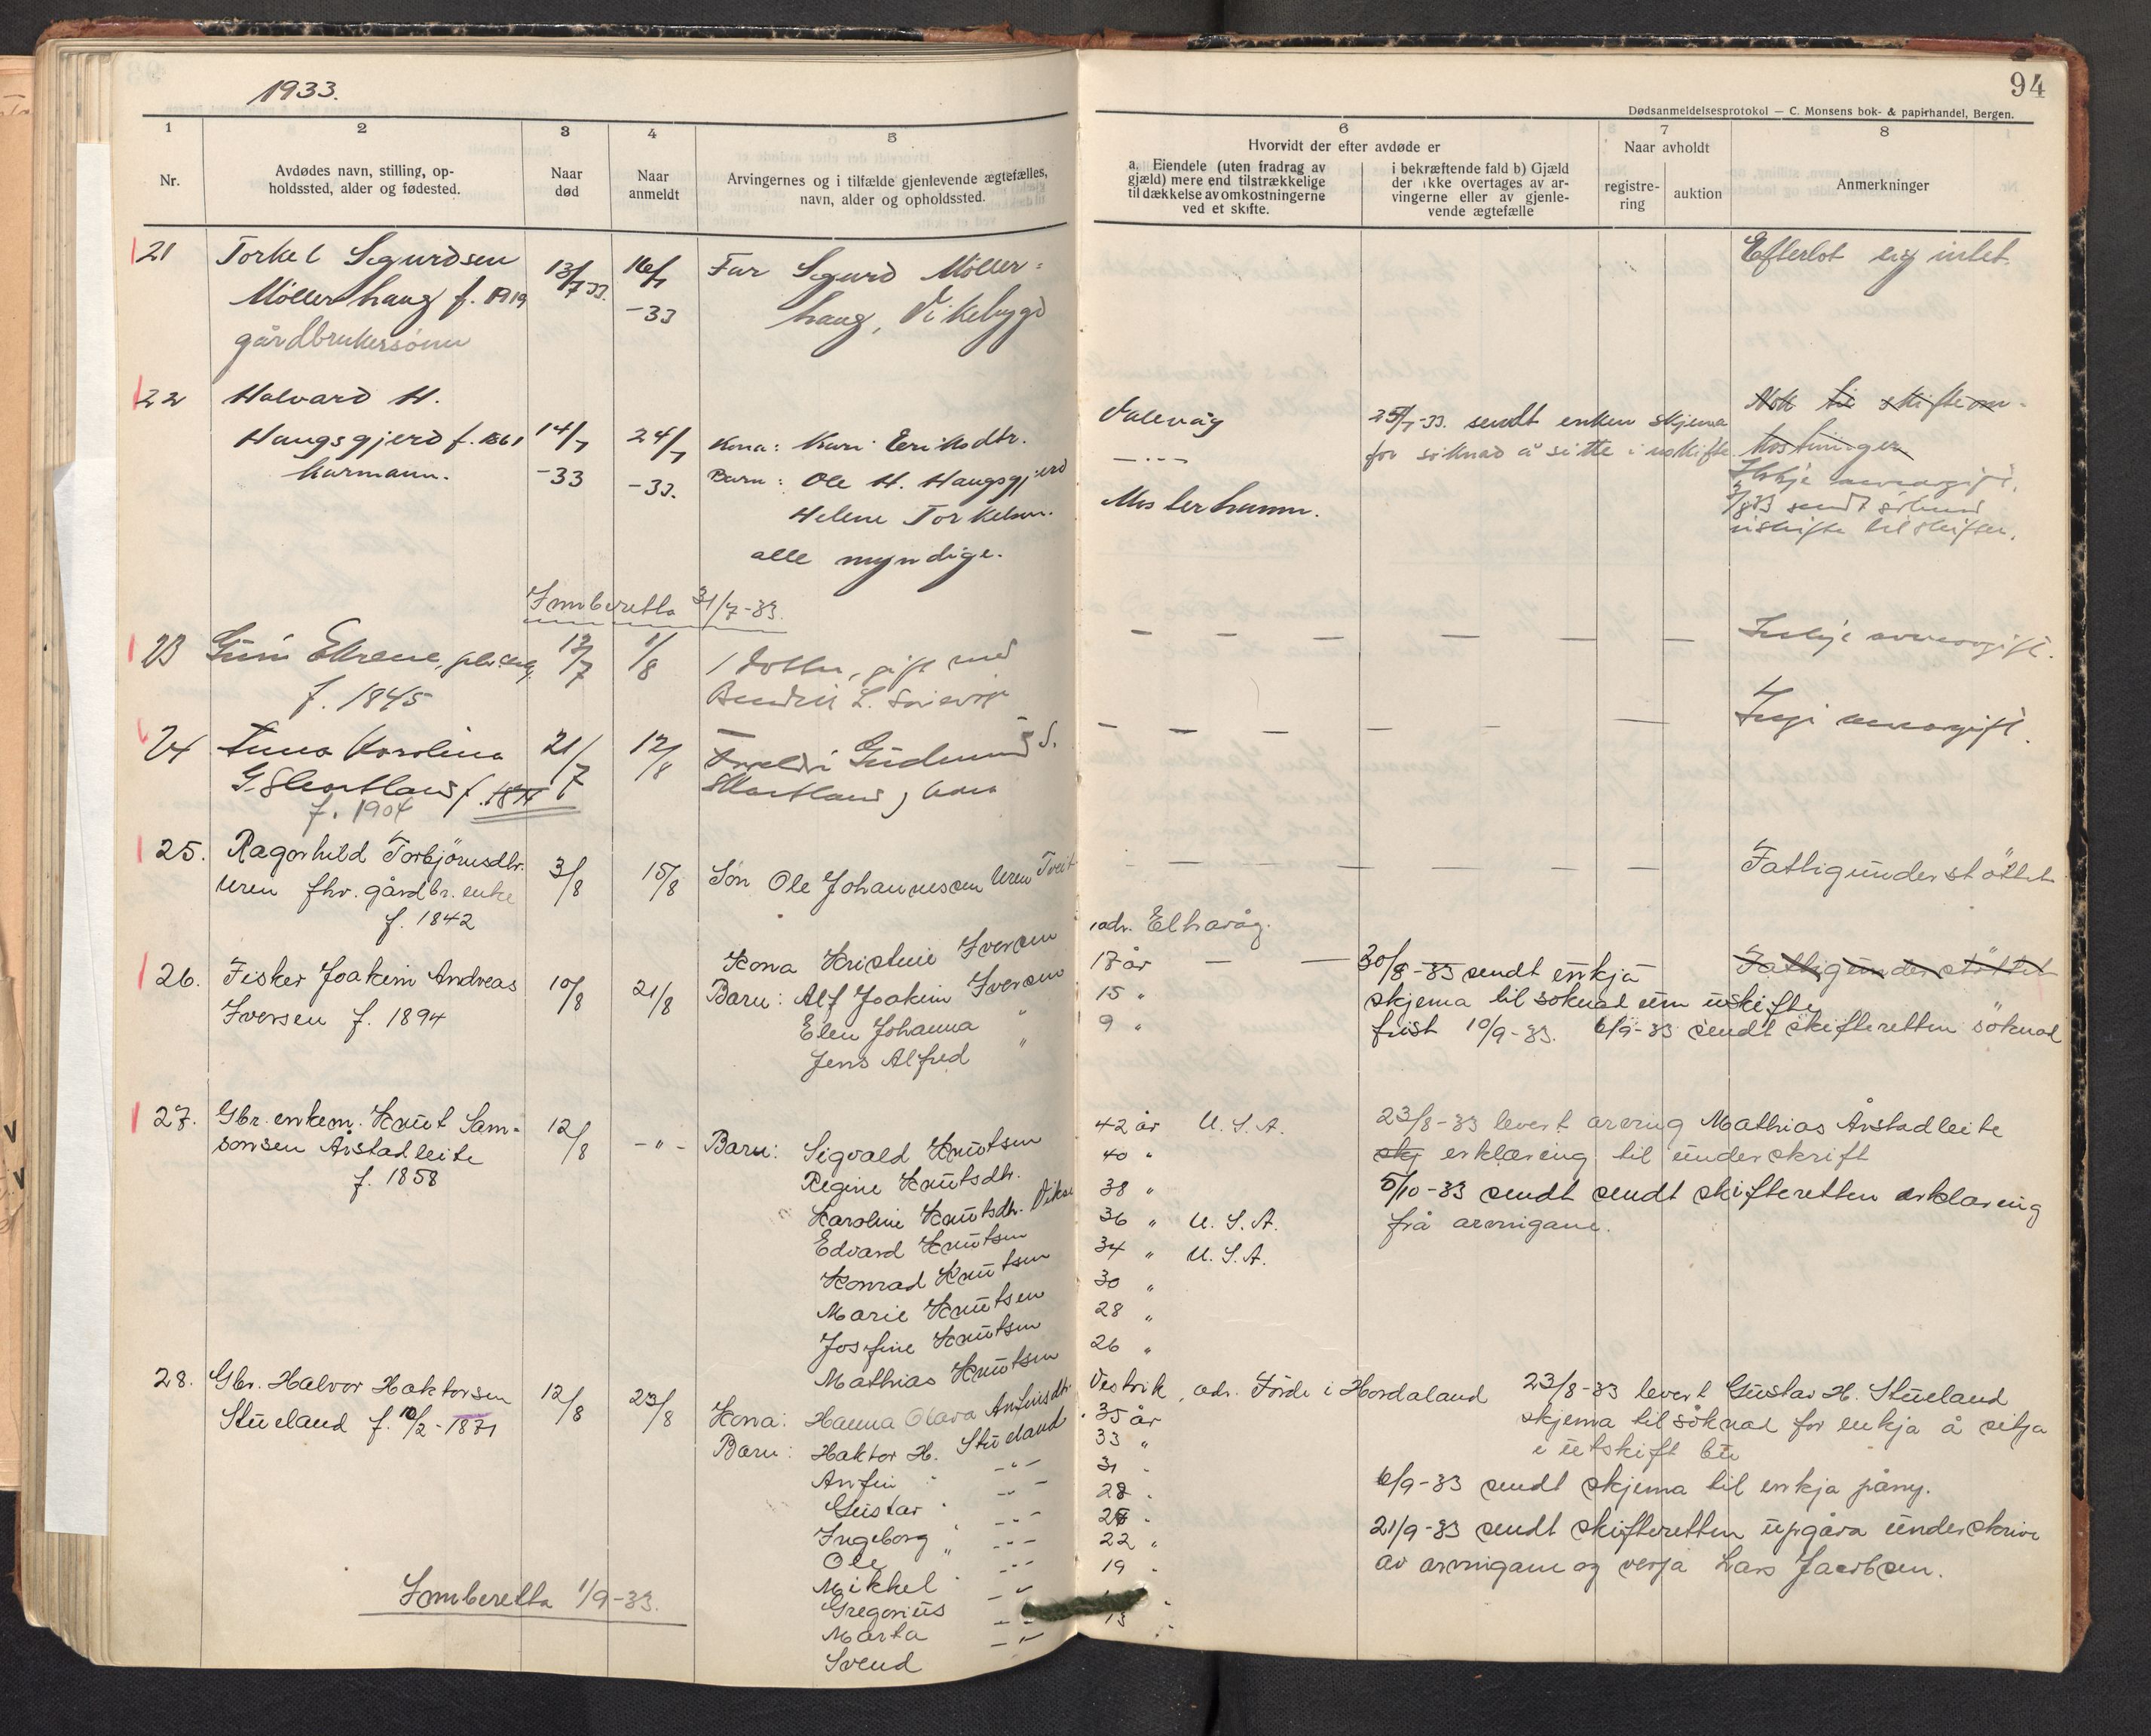 1933.
94
Dødsanmeldelsesprotokol — C. Monsens bok- & papirhandel, Bergen.
1
2
3
4
5
6
7
8
Nr.
Avdødes navn, stilling, op-
holdssted, alder og fødested.
Naar
død
Naar
anmeldt
Arvingernes og i tilfælde gjenlevende ægtefælles,
navn, alder og opholdssted.
Hvorvidt der efter avdøde er
a. Eiendele (uten fradrag av
gjæld) mere end tilstrækkelige
til dækkelse av omkostningerne
ved et skifte.
i bekræftende fald b) Gjæld
der ikke overtages av ar-
vingerne eller av gjenle-
vende ægtefælle
Naar avholdt
registre-
ring
auktion
Anmerkninger
21
Torkel Sigurdsen
Möllerhaug f. 1919
gårdbrukersönn
13/7 33.
16/7
-33
Far Sigurd Möller=
haug, Vikebygd
Efterlot sig intet.
22
Halvard H.
Haugsgjerd f. 1861
kårmann.
14/7
-33
24/7
-33.
Kona: Kari Eriksdtr.
Barn: Ole H. Haugsgjerd
Helene Torkelsen.
alle myndige.
Valevåg
Mosterhamn.
25/7-33. sendt enken skjema
for söknad å sitte i uskifte
Nok til skifteom-
kostninger
Ikkje arveavgift.
sendt
uskifte til skifter.
Innberetta 31/7-33.
23
f. 1845
12/7
1/8
1 dotter, gift med
Ikkje arveavgift.
24
Anna Karolina
f. 1904
21/7
12/8
Foreldri Gudmund S.
arveavgift.
25.
Ragnhild Torbjörnsdtr.
Uren fhv. gårdbr. enke
f. 1842
3/8
15/8
Sön Ole Johannessen Uren Tveit
adr. Elkavåg.
Fattigunderstöttet
26.
Fisker Joakim Andreas
Iversen f. 1894
10/8
21/8
Kona Kristine Iversen
Barn: Alf Joakim Iversen
Elen Johanna "
Jens Alfred "
17 år
15 "
9 "
30/8-33 sendt enkja
skjema til söknad um uskifte
frist 10/9-33. 6/9-33 sendt skifteretten söknad
Fattigunderstöttet
27.
Gbr. enkem. Knut Sam-
sonsen Årstadleite
f. 1858
12/8
-"-
Barn: Sigvald Knutsen
Regine Knutsdtr.
Karoline Knutsdtr. Vikse
Edvard Knutsen
Konrad Knutsen
Marie Knutsen
Josfine Knutsen
Mathias Knutsen
42 år U.S.A.
40 "
38 "
36 " U.S.A.
34 " U.S.A.
30 "
28 "
26 "
23/8-33 levert arving Mathias Årstadleite
skj erklæring til underskrift
5/10-33 sendt sendt skifteretten erklæring
frå arvingane.
28.
Gbr. Halvor Haktorsen
Stueland f. 10/2-1871
12/8
23/8
Kona: Hanna Olava
Barn: Haktor H. Stueland
Anfin " -"-
Gustav " -"-
Ingeborg " -"-
Ole " -"-
Mikkel " -"-
Gregorius -"-
Marta -"-
Svend
Vestvik, adr. Förde i Hordaland
35 år
33 "
31 "
28 "
22 "
19 "
13 "
23/8-33 levert Gustav H. Stueland
skjema til söknad for enkja å sitja
i uskift bu
6/9-33 sendt skjema til enkja påny.
21/9-33 sendt skifteretten uppgåva underskrive
av arvingane og verja Lars Jacobsen.
Innberetta 1/9-33.